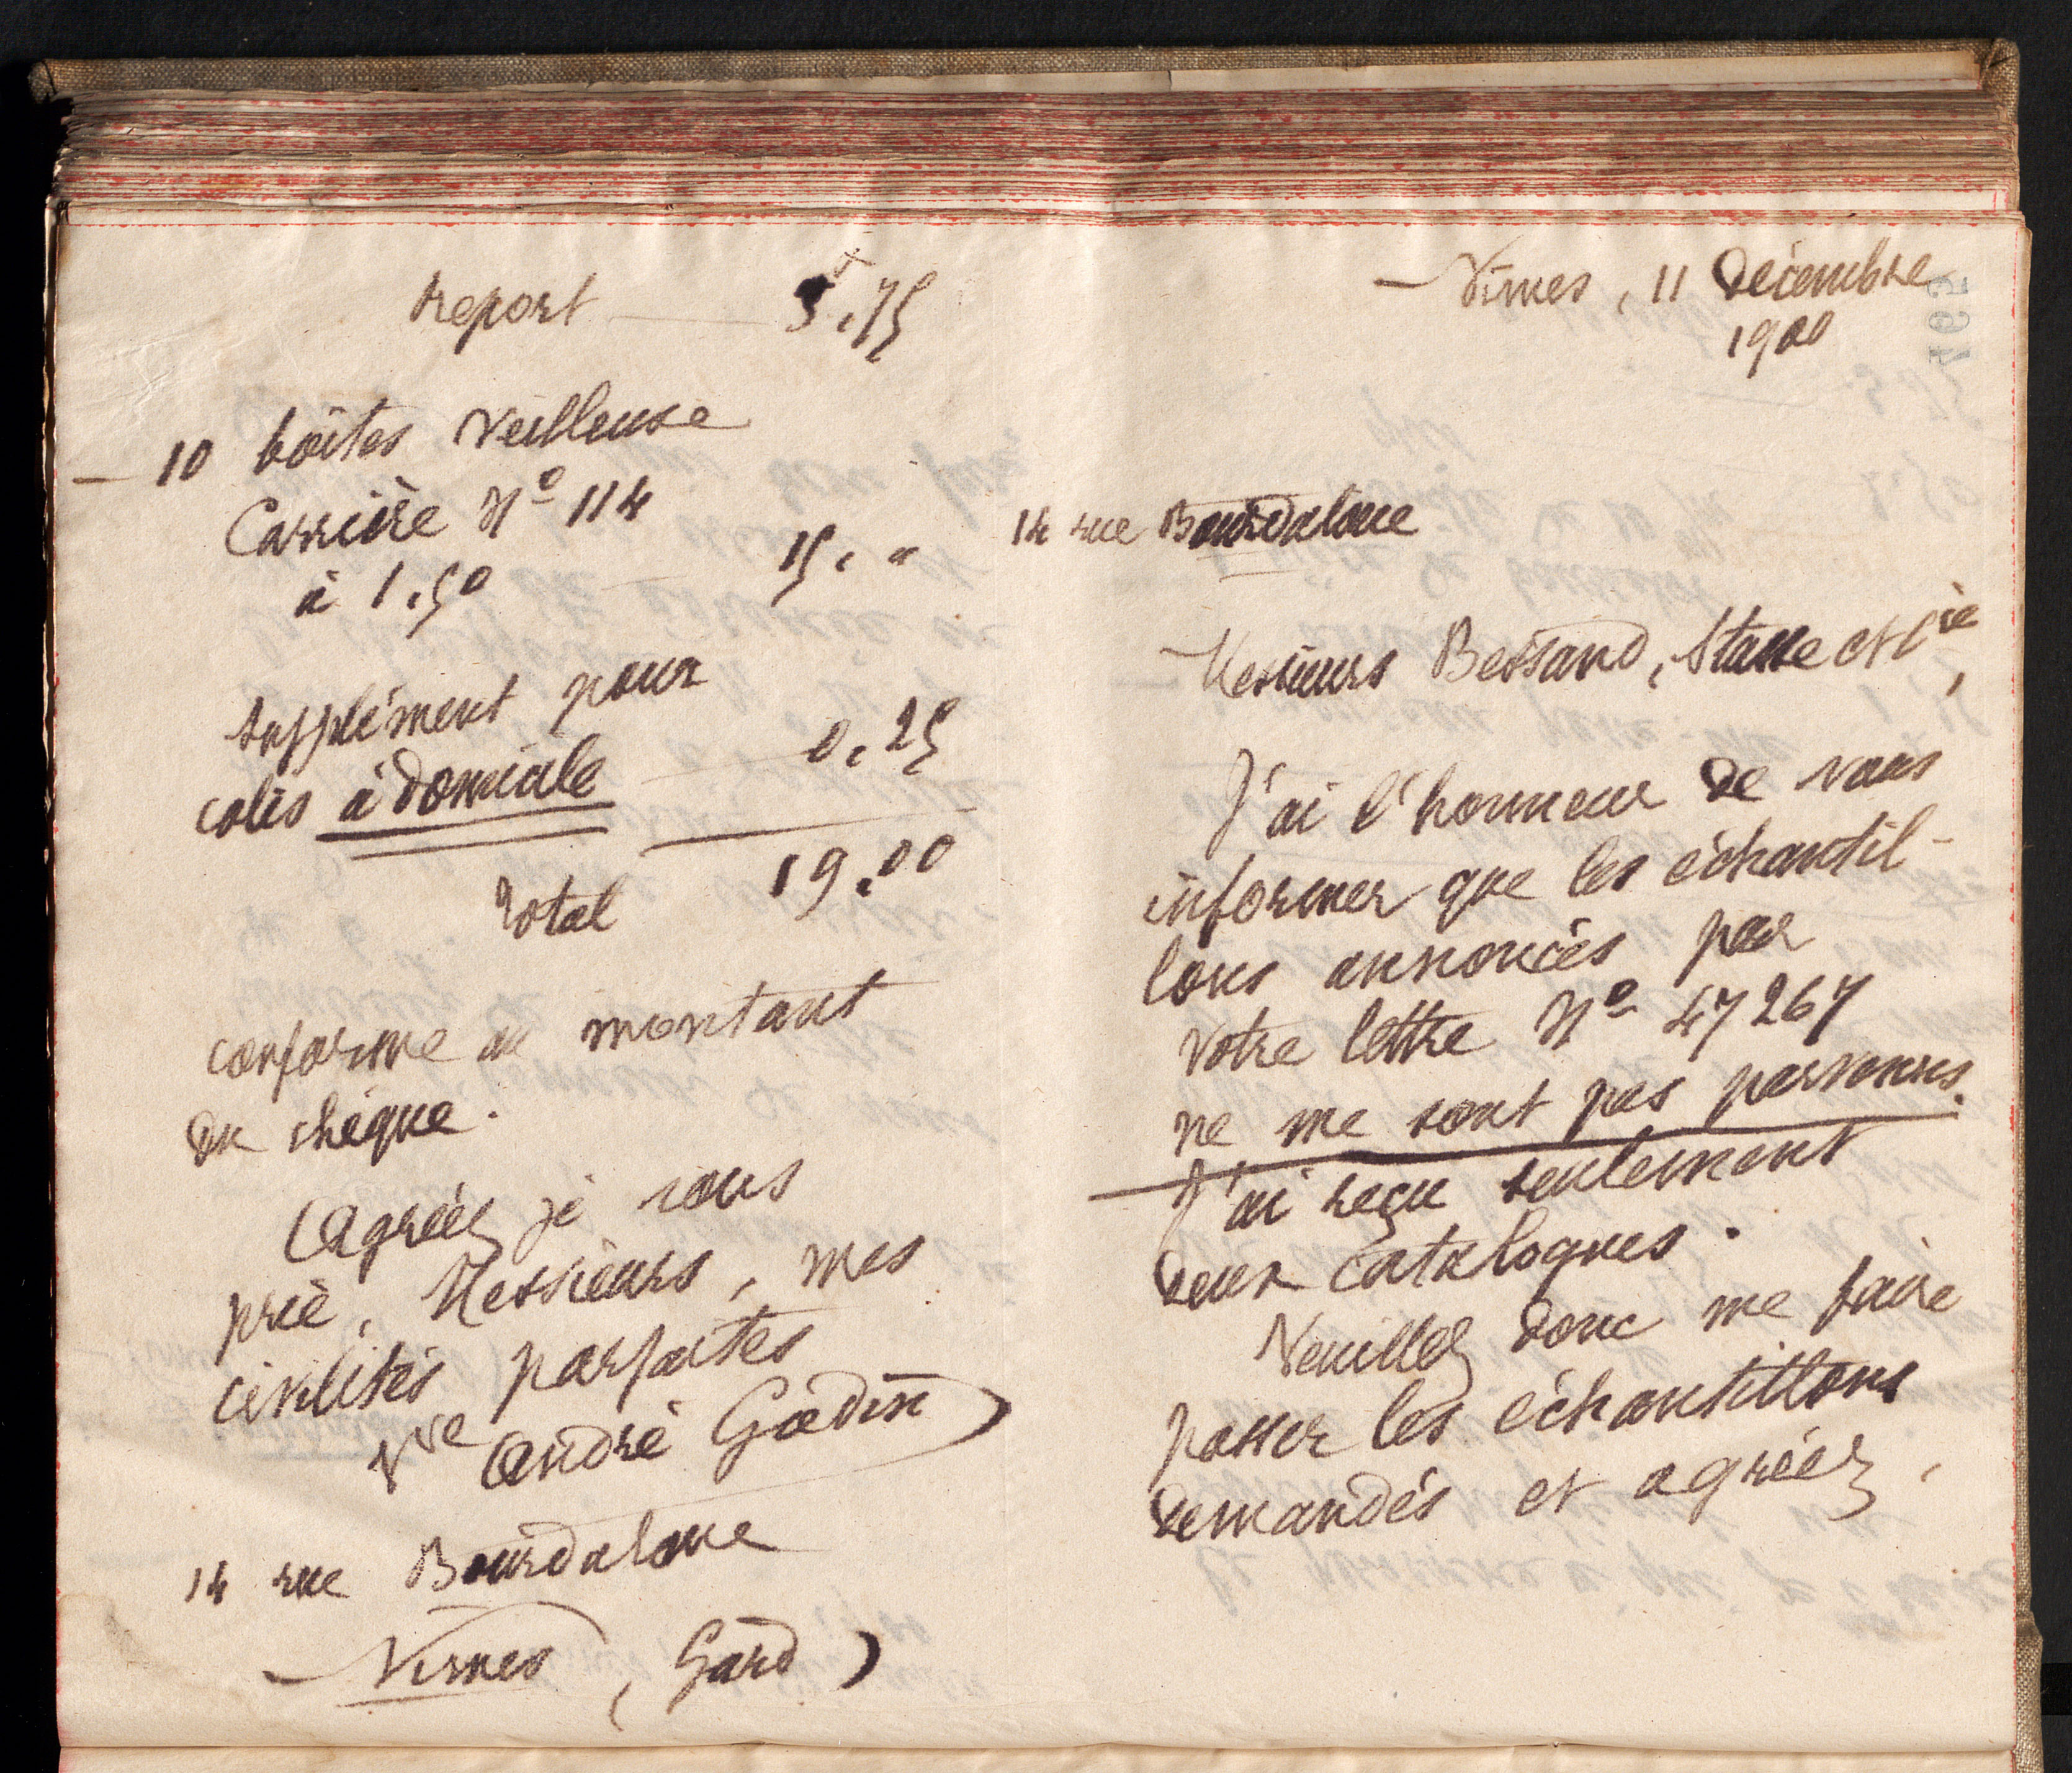 report 3,75
— 10 boîtes Veilleuse
Carrière N° 114
à 1,50 15, "
supplément pour
colis à domicile 0,25
Total 19,00
conforme au montant
du chèque.
Agréez je vous
prie, Messieurs, mes
civilités parfaites
Vve André Godin
14 rue Bourdaloue
Nîmes (Gard)
Nîmes, 11 Décembre
1900
14 rue Bourdaloue
Messieurs Bessand, Stasse et Cie,
J'ai l'honneur de vous
informer que les échantil-
lons annoncés par
votre lettre N° 47267
ne me sont pas parvenus.
J'ai reçu seulement
deux catalogues.
Veuillez donc me faire
passer les échantillons
demandés et agréez,